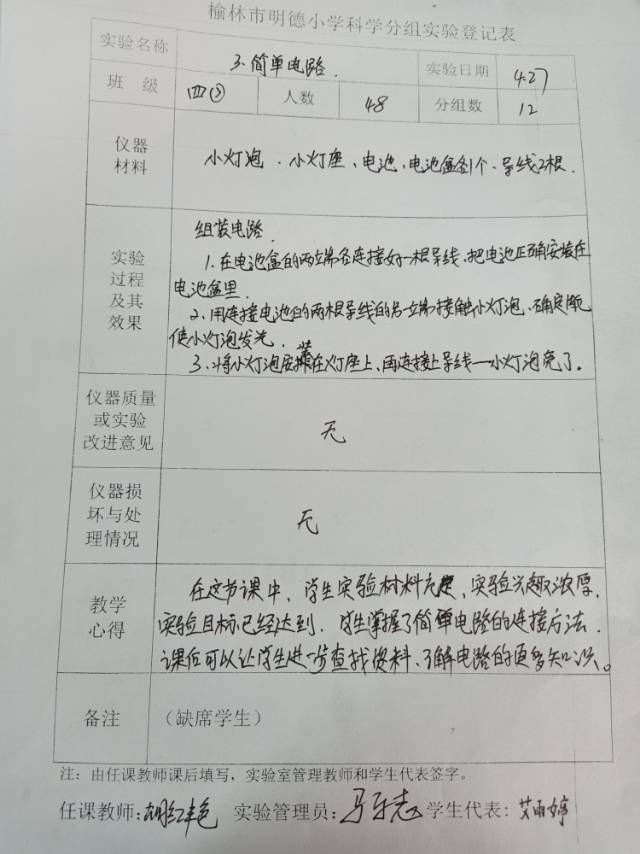 榆林市明德小学科学分组实验登记表
实验名称 3.简单电路. 实验日期 4.27
班级 四(2) 人数 48 分组数 12
仪器材料 小灯泡、小灯座、电池、电池盒各1个、导线2根.
实验过程及其效果
组装电路.
1.在电池盒的两端各连接好一根导线,把电池正确安装在
电池盒里.
2、用连接电池的两根导线的另一端接触小灯泡,确定能
使小灯泡发光.
3、将小灯泡安装在灯座上,再连接上导线—小灯泡亮了。
仪器质量或实验改进意见 无
仪器损坏与处理情况 无
教学心得
在这节课中,学生实验材料充足,实验兴趣浓厚,
实验目标已经达到.学生掌握了简单电路的连接方法.
课后可以让学生进一步查找资料、了解电路的更多知识。
备注 (缺席学生)
注:由任课教师课后填写,实验室管理教师和学生代表签字。
任课教师: 实验管理员: 学生代表:艾雨婷